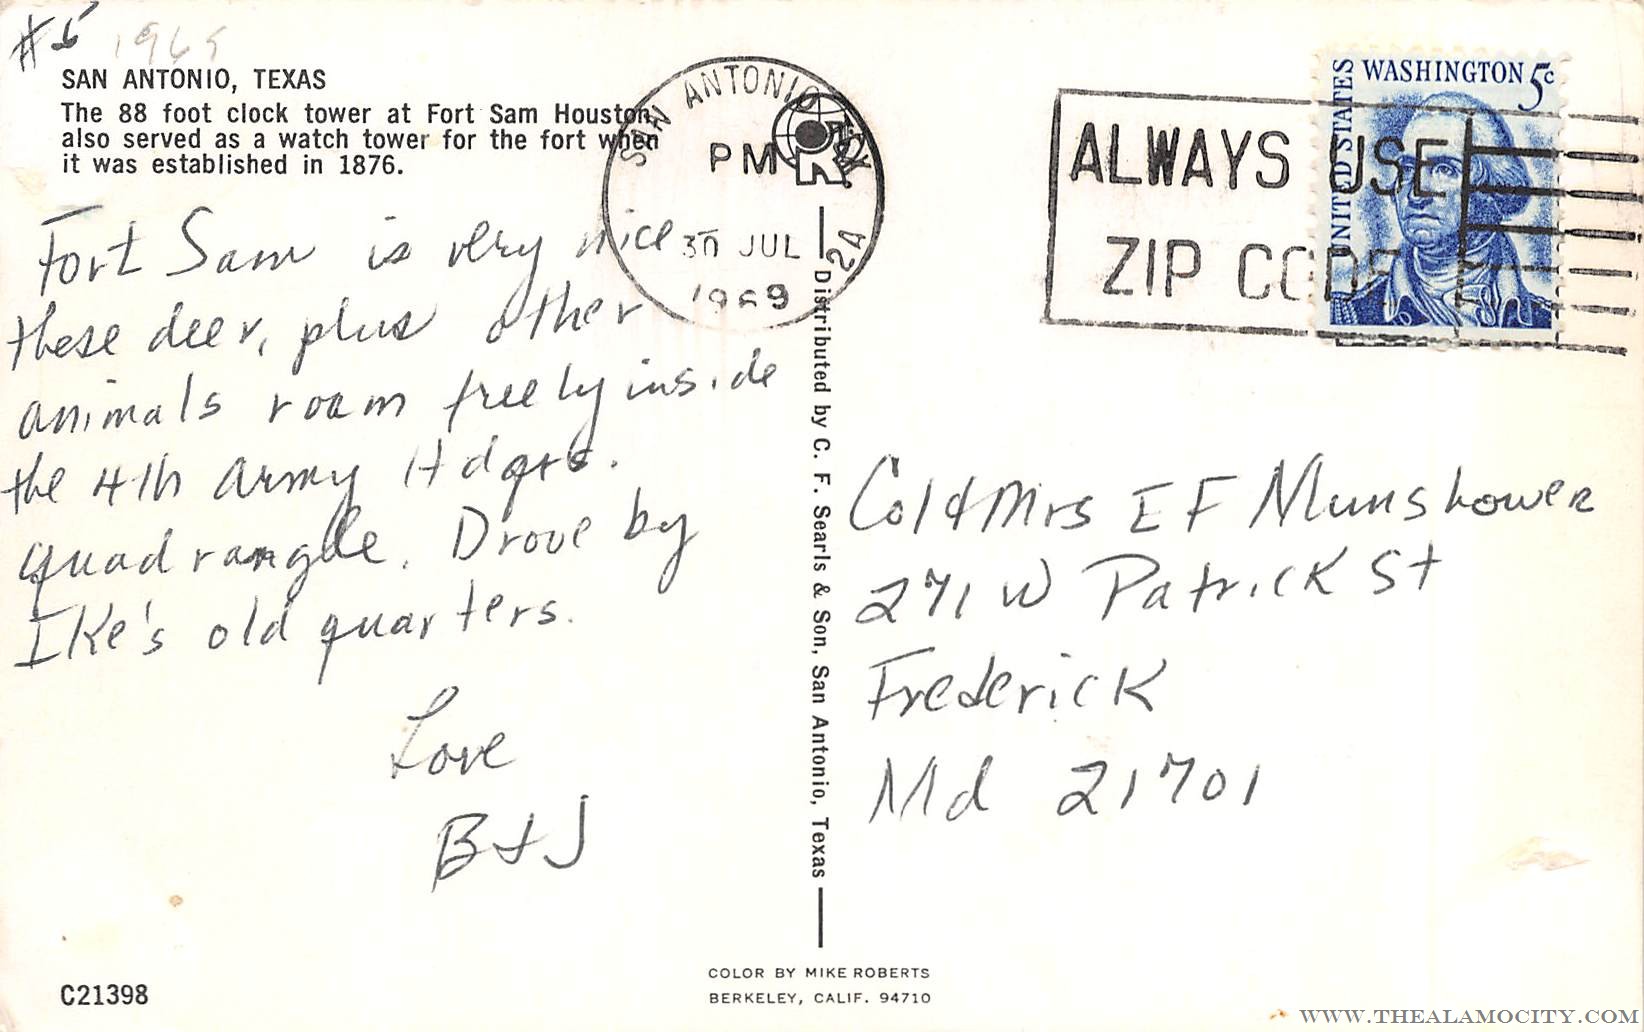 #5 1969
SAN ANTONIO, TEXAS
The 88 foot clock tower at Fort Sam Houston,
also served as a watch tower for the fort when
it was established in 1876.
Fort Sam is very nice
these deer, plus other
animals roam freely inside
the 4th Army Hdqrs.
quadrangle. Drove by
IKE's old quarters.
Love
B + J
C21398
SAN ANTONIO, TEX.
PM
30 JUL
1969
24
Distributed by C. F. Searls & Son, San Antonio, Texas
COLOR BY MIKE ROBERTS
BERKELEY, CALIF. 94710
ALWAYS USE
ZIP CODE
UNITED STATES
WASHINGTON 5c
Col & Mrs E F Munshower
271 W Patrick St
Frederick
Md 21701
WWW.THEALAMOCITY.COM